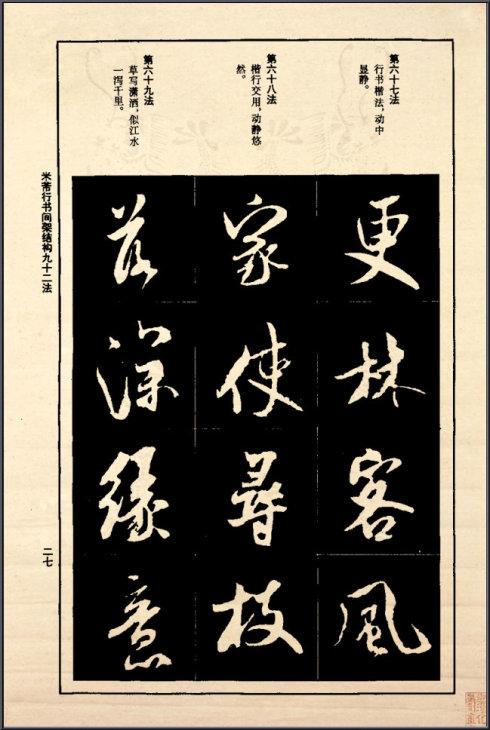 第六十七法
行书楷法,动中
显静。
更
林
客
風
第六十八法
楷行交用,动静悠
然。
家
使
尋
枝
第六十九法
草写潇洒,似江水
一泻千里。
落
深
緣
意
米芾行书间架结构九十二法
二七